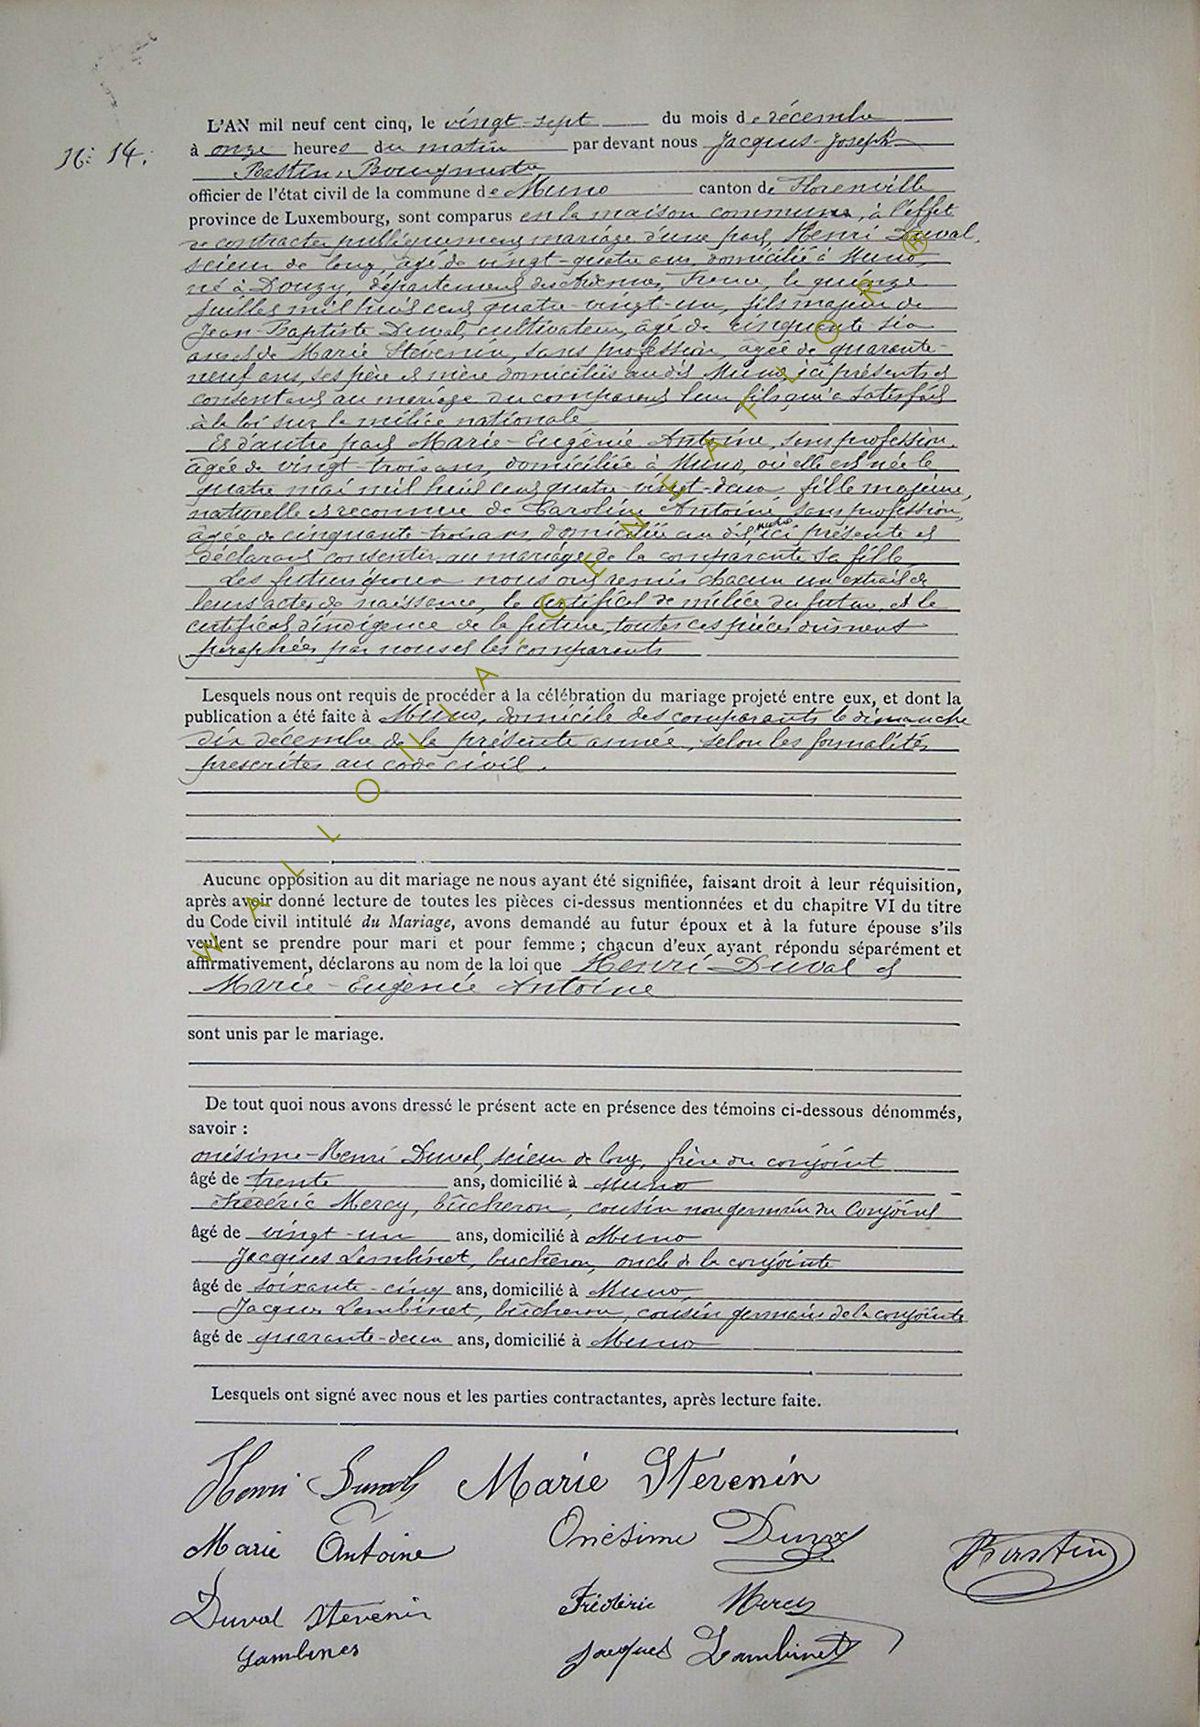 N: 14.
L'AN mil neuf cent cinq, le vingt-sept du mois de décembre
à onze heures du matin par devant nous Jacques-Joseph
Rastin, Bourgmestre
officier de l'état civil de la commune de Muno canton de Florenville
province de Luxembourg, sont comparus en la maison commune, à l'effet
de contracter publiquement mariage d'une part, Henri Duval,
scieur de long, âgé de vingt-quatre ans, domicilié à Muno,
né à Douzy, département des Ardennes, France, le quinze
juillet mil huit cent quatre-vingt-un, fils majeur de
Jean-Baptiste Duval, cultivateur, âgé de cinquante six
ans et de Marie Stévenin, sans profession, âgée de quarante-
neuf ans, ses père et mère domiciliés au dit Muno ici présents et
consentant au mariage du comparant leur fils qui a satisfait
à la loi sur la milice nationale
Et d'autre part Marie-Eugénie Antoine, sans profession,
âgée de vingt-trois ans, domiciliée à Muno, où elle est née le
quatre mai mil huit cent quatre-vingt-deux, fille majeure,
naturelle et reconnue de Caroline Antoine, sans profession,
âgée de cinquante-trois ans, domiciliée au dit Muno, ici présente et
déclarant consentir au mariage de la comparante sa fille
Les futurs époux nous ont remis chacun un extrait de
leurs actes de naissance, le certificat de milice du futur et le
certificat d'indigence de la future, toutes ces pièces dûment
paraphées par nous et les comparants
Lesquels nous ont requis de procéder à la célébration du mariage projeté entre eux, et dont la
publication a été faite à Muno, domicile des comparants le dimanche
dix décembre de la présente année, selon les formalités
prescrites au code civil.
Aucune opposition au dit mariage ne nous ayant été signifiée, faisant droit à leur réquisition,
après avoir donné lecture de toutes les pièces ci-dessus mentionnées et du chapitre VI du titre
du Code civil intitulé du Mariage, avons demandé au futur époux et à la future épouse s'ils
veulent se prendre pour mari et pour femme ; chacun d'eux ayant répondu séparément et
affirmativement, déclarons au nom de la loi que Henri Duval et
Marie-Eugénie Antoine
sont unis par le mariage.
De tout quoi nous avons dressé le présent acte en présence des témoins ci-dessous dénommés,
savoir :
Onésime-Henri Duval, scieur de long, frère du conjoint
âgé de trente ans, domicilié à Muno
Frédéric Mercy, bûcheron, cousin non germain du Conjoint
âgé de vingt-un ans, domicilié à Muno
Jacques Lambinet, bucheron, oncle de la conjointe
âgé de soixante-cinq ans, domicilié à Muno,
Jacques Lambinet, bûcheron, cousin germain de la conjointe
âgé de quarante-deux ans, domicilié à Muno
Lesquels ont signé avec nous et les parties contractantes, après lecture faite.
Henri Duval Marie Stévenin
Marie Antoine Onésime Duval Rastin
Duval Stévenin Frédéric Mercy
Lambinet Jacques Lambinet
WALLONIA GENEAFLOR ®